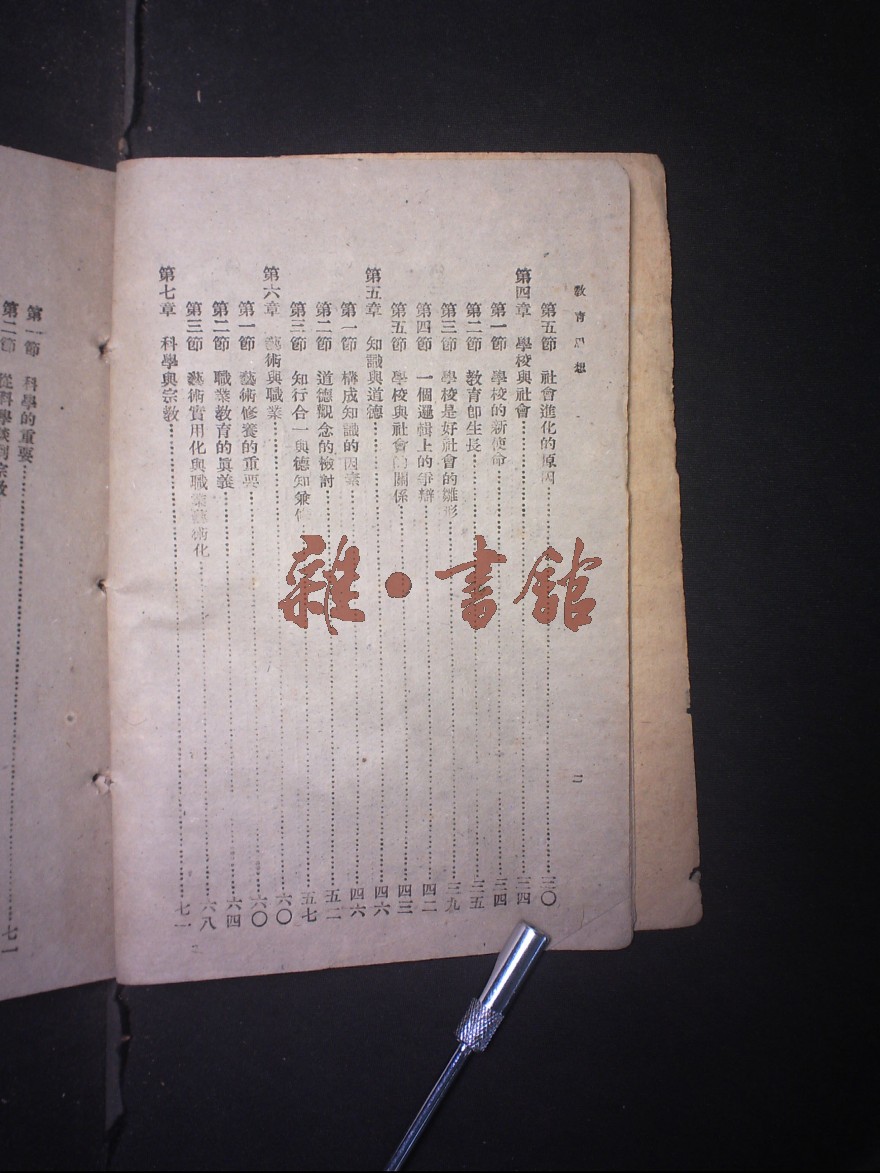 教育思想
二
第五節 社會進化的原因 三〇
第四章 學校與社會 三四
第一節 學校的新使命 三四
第二節 教育卽生長 三五
第三節 學校是好社會的雛形 三九
第四節 一個邏輯上的爭辯 四二
第五節 學校與社會的關係 四三
第五章 知識與道德 四六
第一節 構成知識的因素 四六
第二節 道德觀念的檢討 五二
第三節 知行合一與德知兼修 五七
第六章 藝術與職業 六〇
第一節 藝術修養的重要 六〇
第二節 職業教育的眞義 六四
第三節 藝術實用化與職業藝術化 六八
第七章 科學與宗教 七一
第一節 科學的重要 七一
第二節 從科學談到宗教
雜·書館